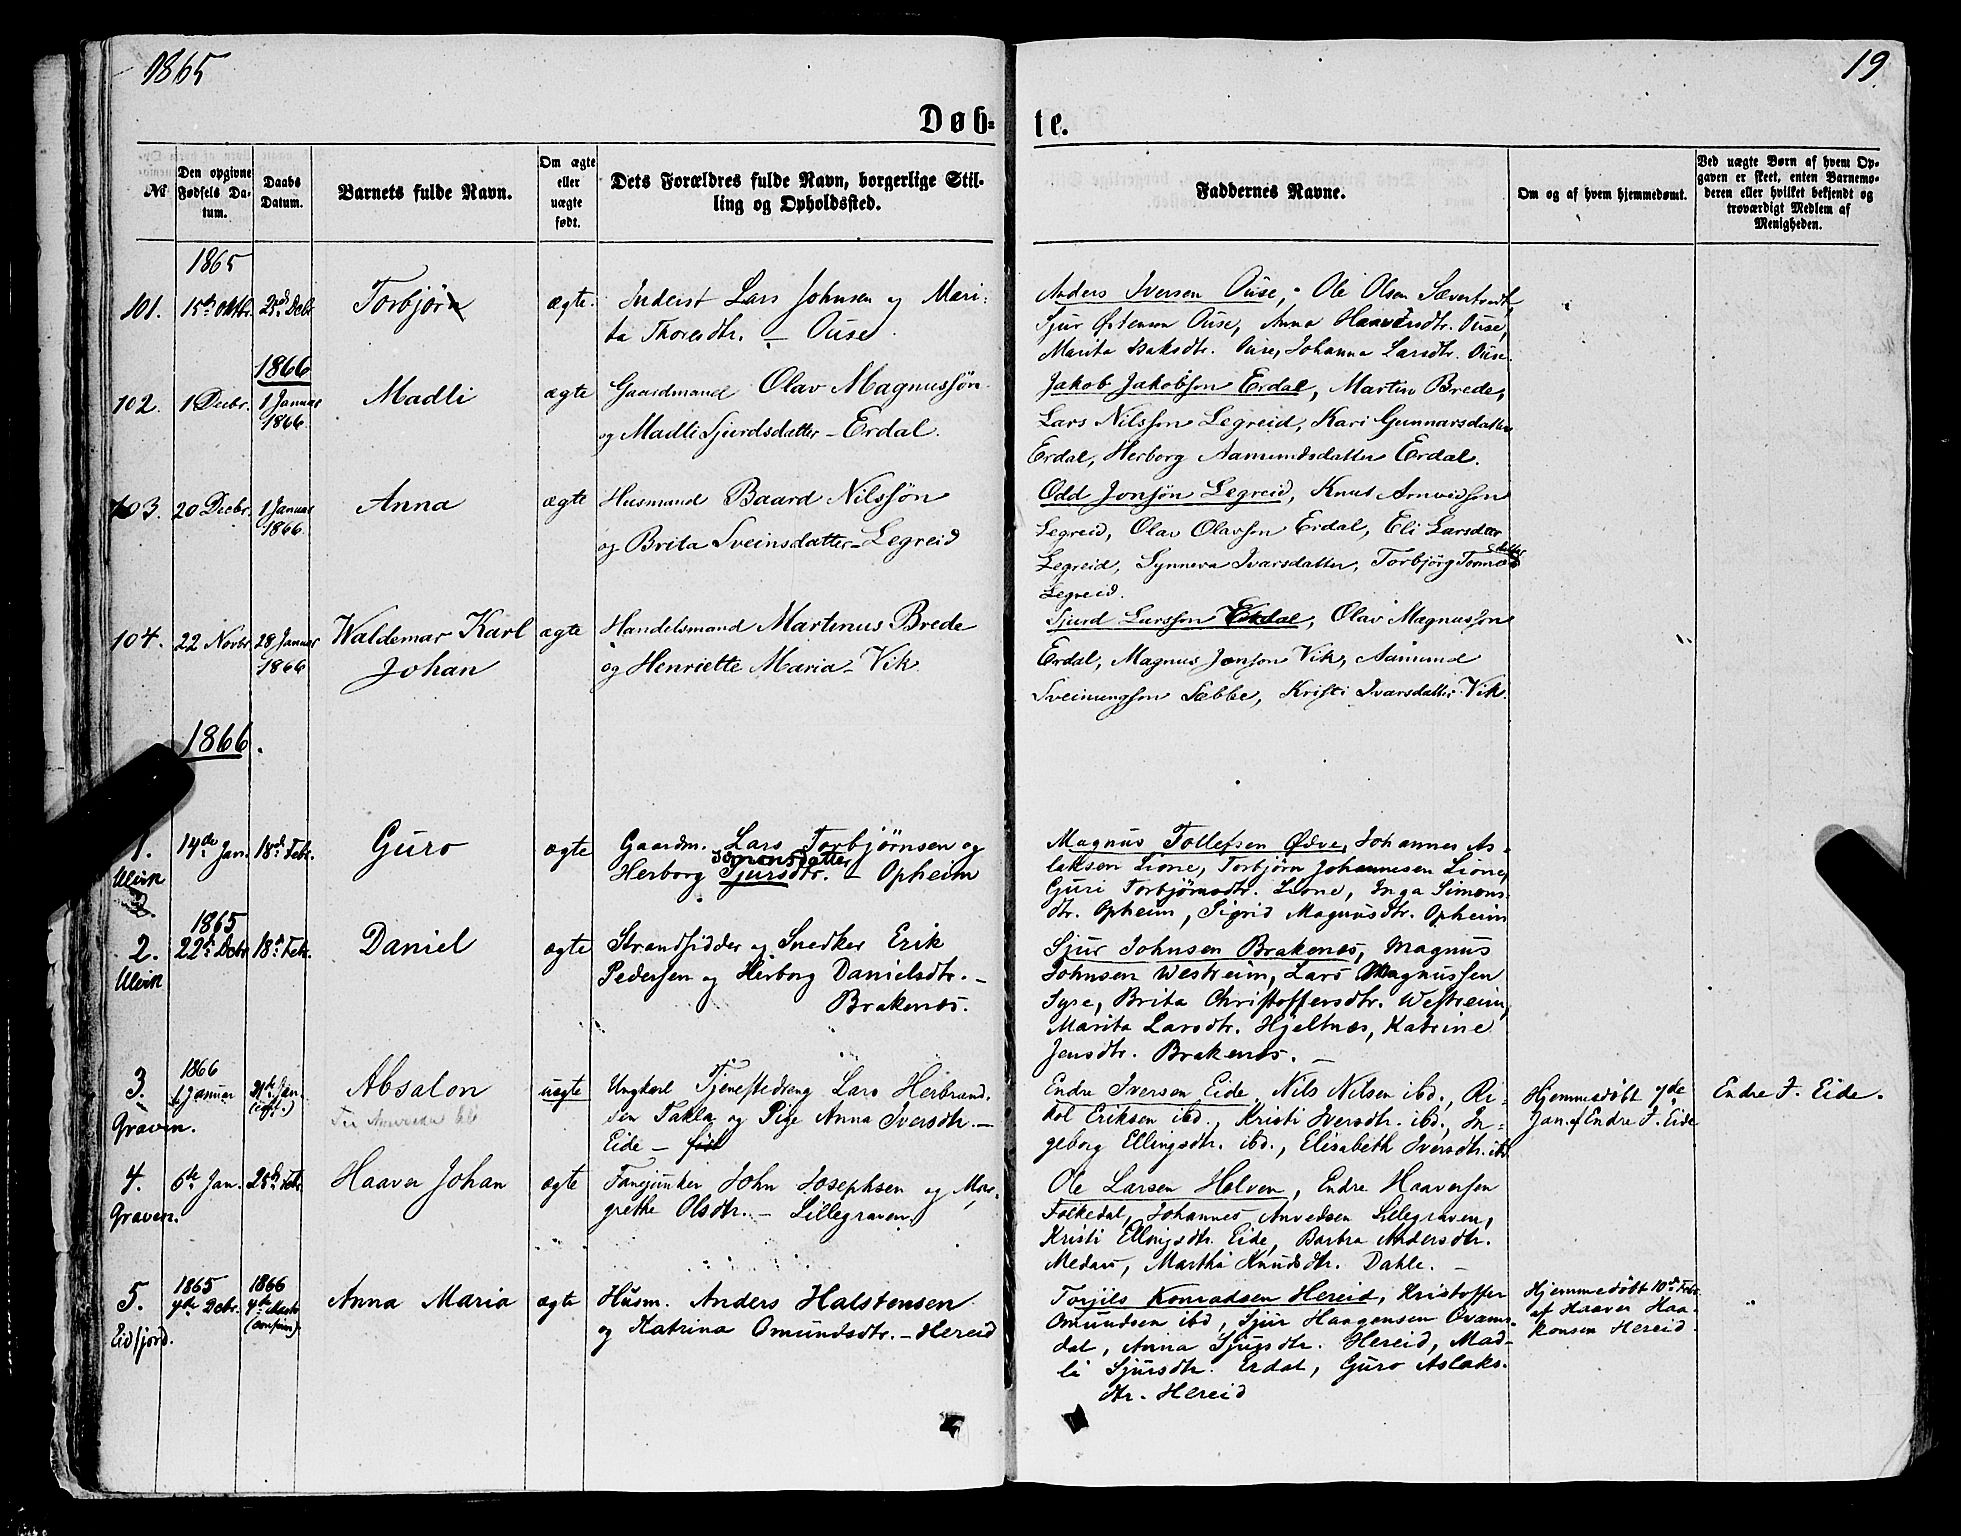 1865
19.
Døb=
te.
№
Den opgivne Fødsels Datum.
Daabs Datum.
Barnets fulde Navn.
Om ægte eller uægte født.
Dets Forældres fulde Navn, borgerlige Stilling og Opholdssted.
Faddernes Navne.
Om og af hvem hjemmedøbt.
Ved uægte Børn af hvem Opgaven er skeet, enten Barnemoderen eller hvilket bekjendt og troværdigt Medlem af Menigheden.
1865
101. 15de Oktbr. 25de Decbr Torbjørn ægte. Inderst Lars Johnsen og Mari-
ta Thoresdtr. – Ouse.
Anders Iversen Ouse, Ole Olsen
Sjur Østensen Ouse, Anna Haaversdtr. Ouse,
Marita Isaksdtr. Ouse, Johanna Larsdtr. Ouse.
1866
102. 1 Decbr. 1 Januar 1866 Madli ægte Gaardmand Olav Magnussøn
og Madli Sjurdsdatter – Erdal.
Jakob Jakobsson Erdal, Martin Brede,
Lars Nilsson Legreid, Kari Gunnarsdatter
Erdal, Herborg Aamundsdatter Erdal.
103. 20 Decbr. 1 Januar 1866 Anna ægte Husmand Baard Nilssøn
og Brita Sveinsdatter – Legreid
Odd Jonsøn Legreid, Knut Arnvidson
Legreid, Olav Olavson Erdal, Eli Larsdtter
Legreid, Synneva Ivarsdatter, Torbjørg
Legreid.
104. 22 Novbr 28 Januar 1866 Waldemar Karl ægte Handelsmand Martinus Brede
Johan og Henriette Maria – Vik
Sjurd Larsson Erdal, Olav Magnusson
Erdal, Magnus Jonson Vik, Aamund
Sveinungson Sæbbe, Kristi Ivarsdatter Vik.
1866.
1. Ulvik 14de Jan. 18de Febr. Guro ægte Gaardm. Lars Torbjørnsen og
Simonsdatter
Herborg Sjursdtr. – Opheim
Magnus Tollefsen Ødve, Johannes As-
laksen Lione, Torbjørn Johannesen Lione,
Guri Torbjørnsdtr. Lione, Inga Simons-
dtr. Opheim, Sigrid Magnusdtr. Opheim
1865
2. Ulvik 22de Decbr 18de Febr. Daniel ægte Strandsidder og Snedker Erik
Pedersen og Herborg Danielsdtr. –
Brakenæs.
Sjur Johnsen Brakenæs, Magnus
Johnsen Westreim, Lars Magnussen
Syse, Brita Christoffersdtr. Westreim,
Marita Larsdtr. Hjeltnæs, Katrine
Jensdtr. Brakenæs. –
1866
3. Graven. Januar Jan. Absalon uægte Ungkarl Tjenestedreng Lars Herbrand-
sen Takla og Pige Anna Iversdtr. –
Eide –
Endre Iversen Eide, Nils Nilsen ibd., Ri-
kol Eriksen ibd., Kristi Iversdtr. ibd., In-
geborg Ellingsdtr. ibd., Elisabeth Iversdtr. ibd.
Hjemmedøbt 7de
Jan. af Endre I. Eide
Endre I. Eide.
4. Graven. 6te Jan. 25de Febr. Haaver Johan ægte Fanejunker John Josephsen og Mar-
grethe Olsdtr. – Lillegraven
Ole Larsen Helven, Endre Haaversen
Folkedal, Johannes Anvedsen Lillegraven,
Kristi Ellingsdtr. Eide, Barbra Andersdtr.
Medaas, Martha Knudsdtr. Dahle. –
1865 1866
5. Eidfjord. Decbr. Anna Maria ægte Husm. Anders Halstensen
og Katrina Omundsdtr. – Hereid
Torjils Konradsen Hereid, Kristoffer
Omundsen ibd, Sjur Haagensen Øvams-
dal, Anna Sjursdtr. Hereid, Mad-
li Sjursdtr. Erdal, Guro Aslaks-
dtr. Hereid
Hjemmedøbt 10de Febr
af Haaver Haa-
konsen Hereid.